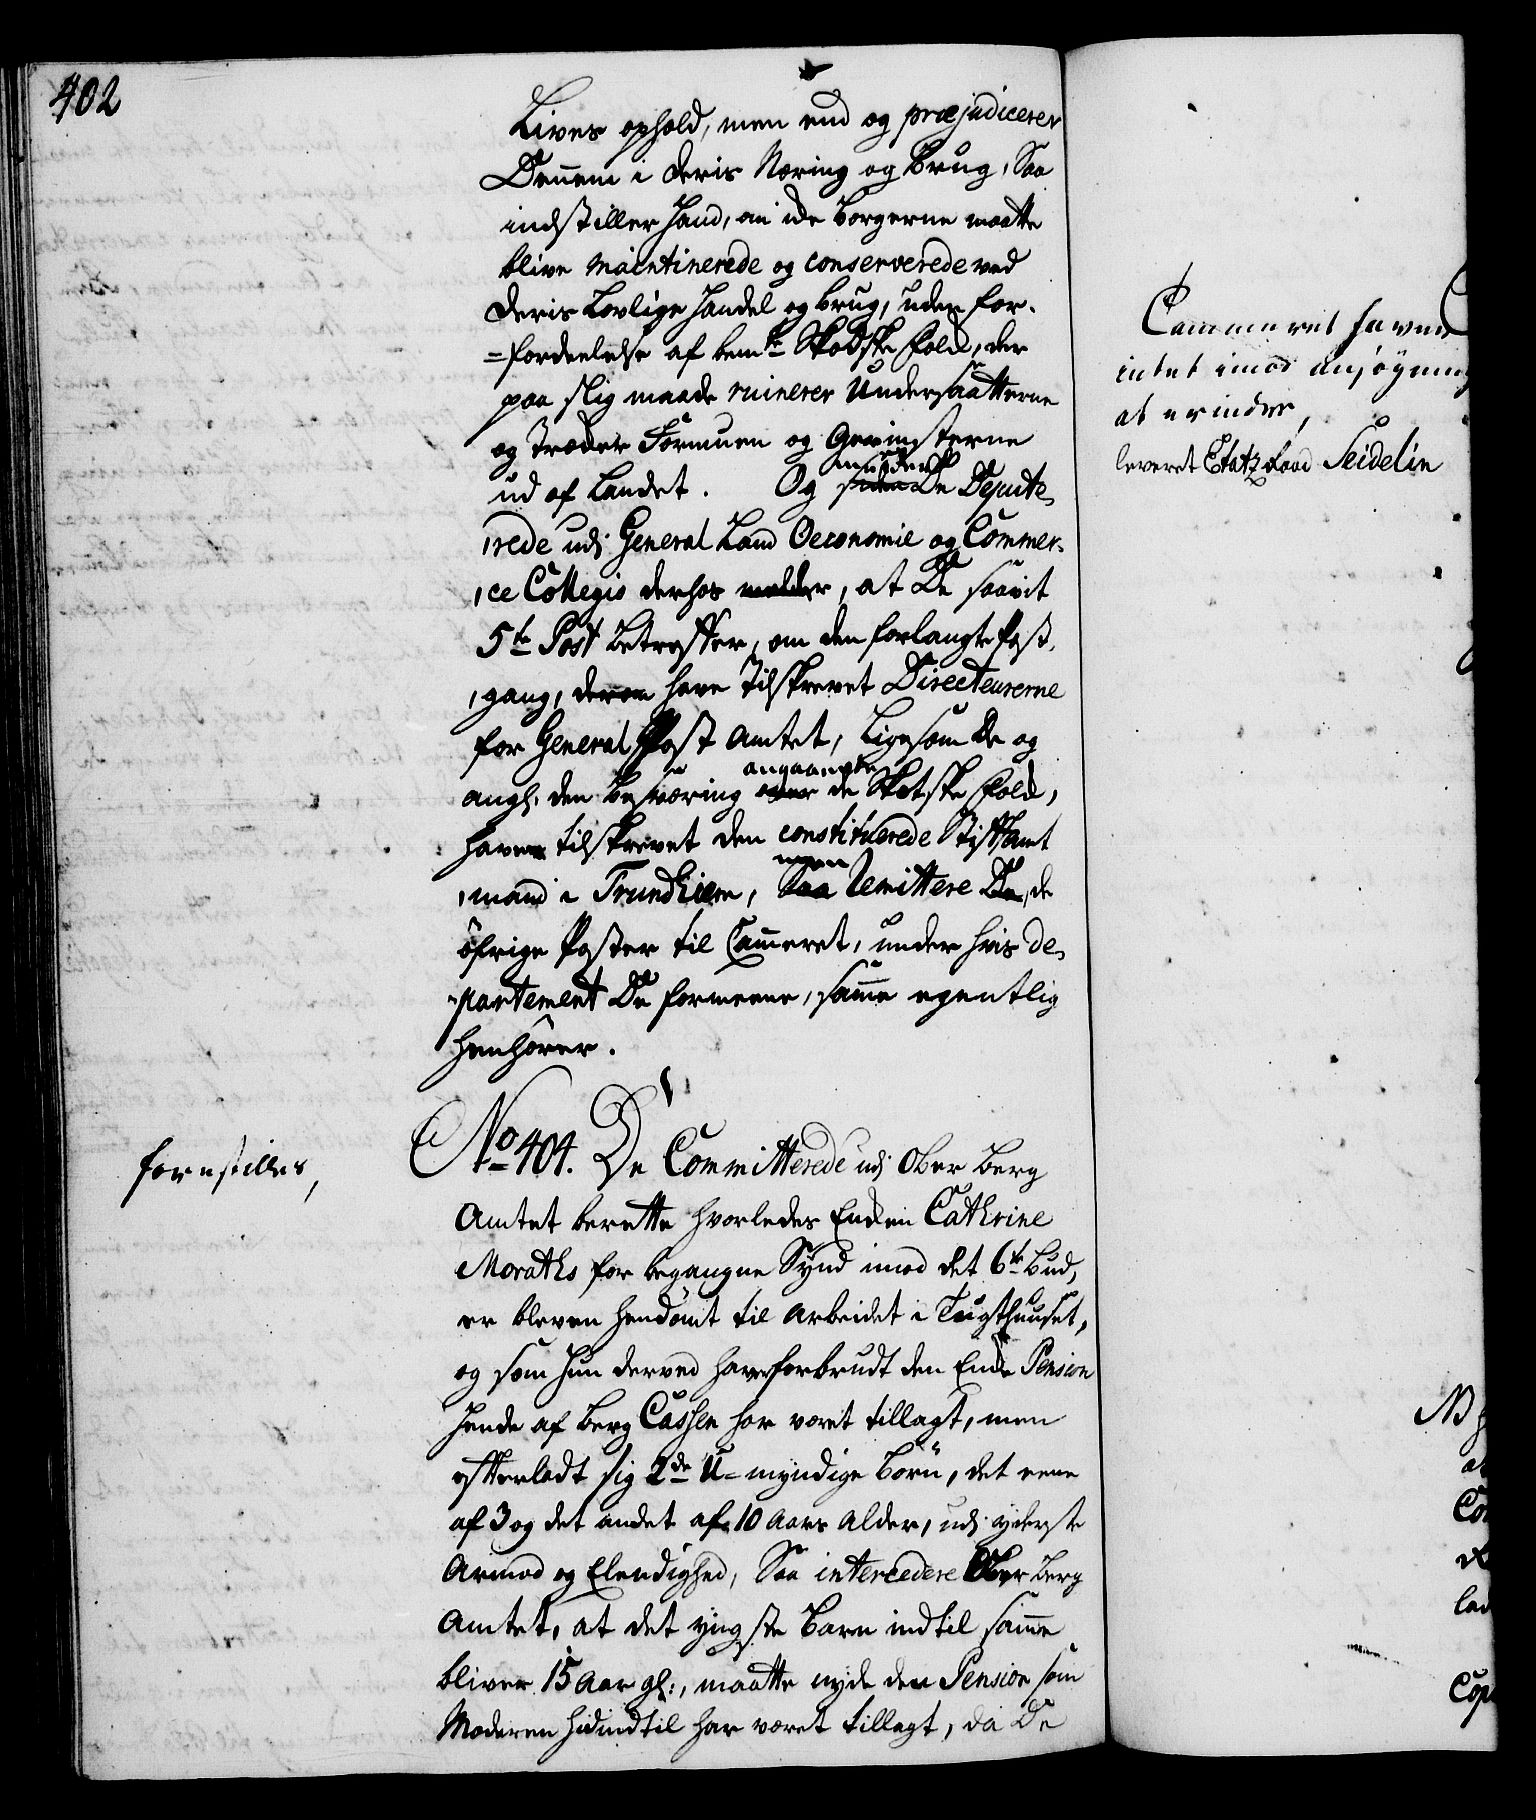 402
Lives ophold, men end og præjudicerer
Dennem i deris Næring og Brug, Saa
indstiller Hand, om ide Borgerne maatte
blive maintinerede og conserverede ved
deris Lovlige Handel og brug, uden for-
=fordeelelse af bemte Skodske Folk, der
paa slig maade ruinerer Undersaatterne
og Træder Formuen og Gevinsterne
ud af Landet. Og melder De Depute-
rede udj General Land Oeconomie og Commer-
ce Collegio derhos melder, at De saavit
5te Post betreffer, om den forlangte Post-
gang, derom have Tilskrevet Directeurerne
for General Post Amtet, Ligesom De og
angl. den besværing over angaaende de Skotske Folk,
haver tilskrevet den constituerede Stiftamt
mand i Trundhiem, Saa men Remittere De, de
öfrige Poster til Cammeret, under hvis De-
partement De formeene, samme egentlig
henhörer.
fornstilles,
No 404. De Committerede udj Ober Berg
Amtet berette hvorledes Enken Cathrine
Moraths for begangne Synd imod det 6te Bud,
er bleven hendömt til Arbeidet i Tugthuuset,
og som hun derved haver forbrudt den Enke Pension
hende af Berg Cassen har været tillagt, men
efterladt sig 2de U-myndige Börn, det eene
af 3 og det andet af 10 Aars Alder, udj yderste
Armod og Elendighed, Saa intercedere Ober Berg
Amtet, at det yngste Barn indtil samme
bliver 15 Aar gl:, maatte nyde den Pension som
Moderen hidindtil har været tillagt, da De
Cammeret haver
intet imod Ansøgning
at erindre,
leveret Etatz Raad Seidelin
NB